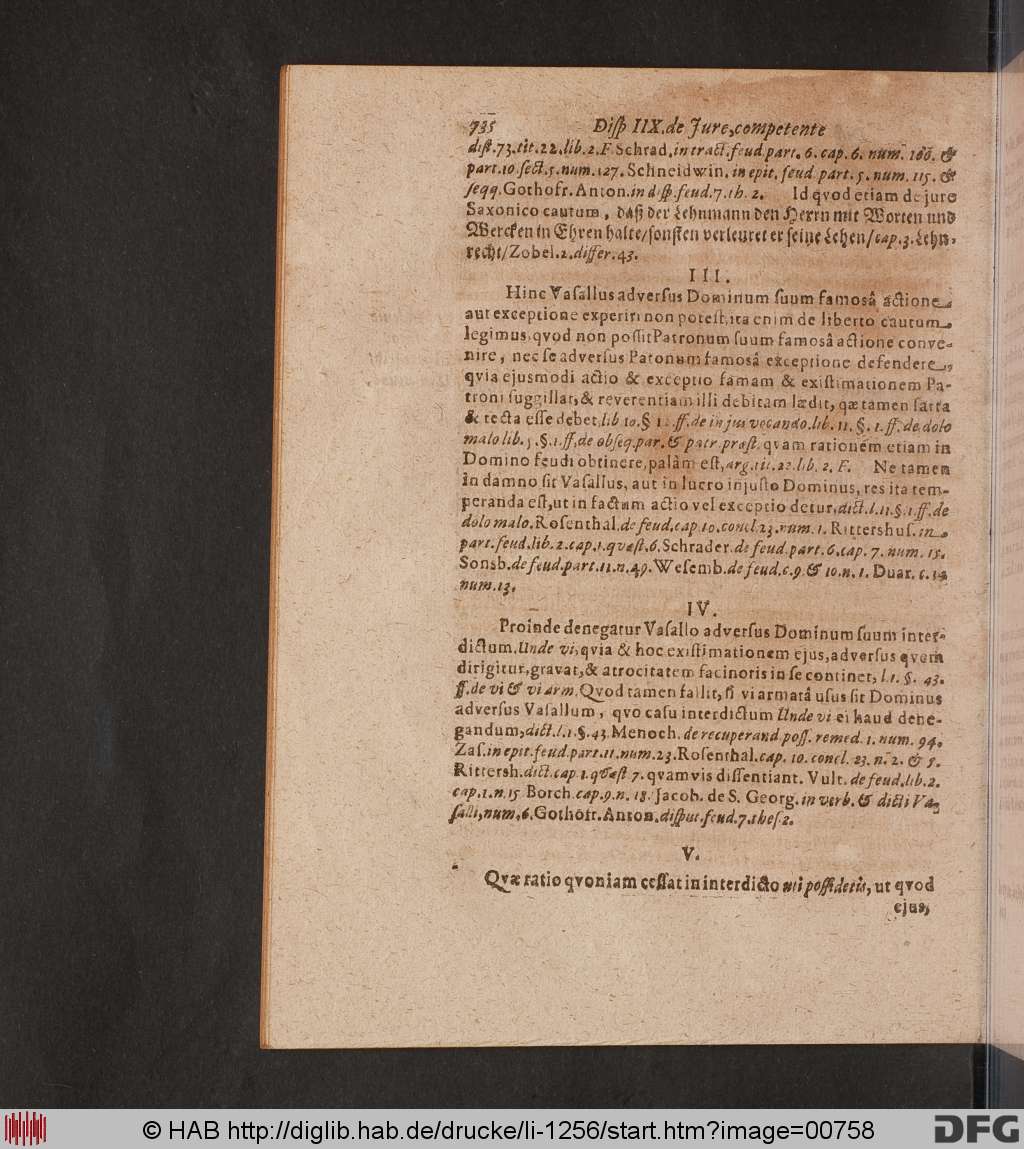 735 Diſp IIX. de Jure, competente
diſt. 73. tit. 22. lib. 2. F. Schrad. in tract. feud part. 6. cap. 6. num. 100. &
part. 10 ſect. 5. num. 127. Schneidwin. in epit. feud. part. 5. num. 115. &
ſeqq. Gothofr. Anton. in diſp. feud. 7. th. 2. Id qvod etiam de jure
Saxonico cautum, daß der Lehnmann den Herrn mit Worten und
Wercken in Ehren halte/ ſonſten verleuret er ſeine Lehen/ cap. 3. Lehn-
recht/ Zobel. 2. differ. 43.
III.
Hinc Vaſallus adverſus Dominum ſuum famosâ actione,
aut exceptione experiri non poteſt, ita enim de liberto cautum
legimus, qvod non poſſit Patronum ſuum famosâ actione conve-
nire, nec ſe adverſus Patonum famosâ exceptione defendere,
qvia ejusmodi actio & exceptio famam & exiſtimationem Pa-
troni ſuggillat, & reverentiam illi debitam lædit, qæ tamen ſarta
& tecta eſſe debet, lib 10. § 12. ff. de in jus vocando. lib. 11. §. 1. ff. de dolo
malo lib. 5. §. 1. ff, de obſeq. par. & patr. præſt. qvam rationem etiam in
Domino feudi obtinere, palàm eſt, arg. tit. 22. lib. 2. F. Ne tamen
in damno ſit Vaſallus, aut in lucro injuſto Dominus, res ita tem-
peranda eſt, ut in factum actio vel exceptio detur, dict. l. 11. §. 1. ff. de
dolo malo. Roſenthal. de feud. cap. 10. concl. 23. num. 1. Rittershuſ. in
part. feud. lib. 2. cap. 1. qvæſt. 6. Schrader. de feud. part. 6. cap. 7. num. 15.
Sonsb. de feud. part. 11. n. 49. Weſemb. de feud. c. 9. & 10. n. 1. Duar. c. 14
num. 13.
IV.
Proinde denegatur Vaſallo adverſus Dominum ſuum inter-
dictum. Unde vi, qvia & hoc exiſtimationem ejus, adverſus qvem
dirigitur, gravat, & atrocitatem facinoris in ſe continet, l. 1. §. 43.
ff. de vi & vi arm. Qvod tamen fallit, ſi vi armatâ uſus ſit Dominus
adverſus Vaſallum, qvo caſu interdictum Unde vi ei haud dene-
gandum, dict. l. 1. §. 43. Menoch. de recuperand. poſſ. remed. 1. num. 94.
Zaſ. in epit. feud. part. 11. num. 23. Roſenthal. cap. 10. concl. 23. n. 2. & 5.
Rittersh. dict. cap 1. qvæſt 7. qvamvis diſſentiant. Vult. de feud. lib. 2.
cap. 1. n. 15 Borch. cap. 9. n. 18. Jacob. de S. Georg. in verb. & dicti Va-
ſalli, num. 6. Gothofr. Anton. diſput. feud. 7. theſ 2.
V.
Qvæ ratio qvoniam ceſſat in interdicto uti poſſidetis, ut qvod
ejus,
© HAB http://diglib.hab.de/drucke/li-1256/start.htm?image=00758
DFG